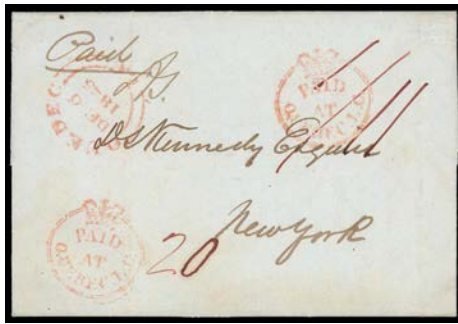 Paid
QUEBEC
DE 6
PAID
AT
QUEBEC L.C
D S Kennedy Esquire
New York
20
PAID
AT
QUEBEC L.C